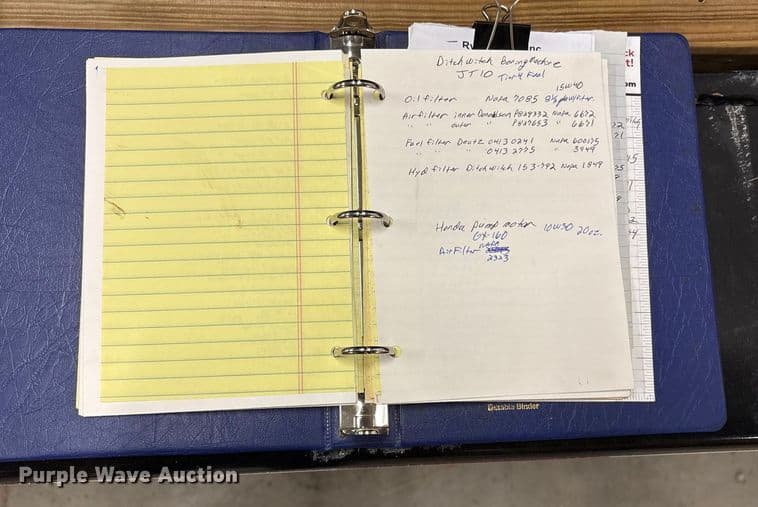 Ditch Witch Boring Machine
JT10 Tier 4 Final
15W40
Oil filter Napa 7085 8½ qts w/filter.
Air filter inner Donaldson P829332 Napa 6672
" " outer " P827653 " 6671
Fuel filter Deutz 0413 0241 Napa 600175
" " " 0413 2775 " 3949
Hyd filter Ditch Witch 153-792 Napa 1849
Honda pump motor 10W30 20oz.
GX-160
Air Filter NAPA
2323
Durable Binder
Purple Wave Auction